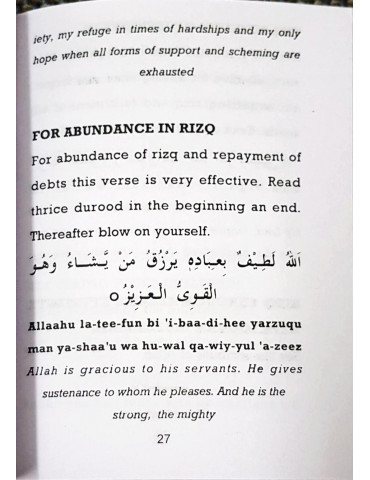 iety, my refuge in times of hardships and my only
hope when all forms of support and scheming are
exhausted
FOR ABUNDANCE IN RIZQ
For abundance of rizq and repayment of
debts this verse is very effective. Read
thrice durood in the beginning an end.
Thereafter blow on yourself.
اَللهُ لَطِيْفٌ بِعِبَادِهٖ يَرْزُقُ مَنْ يَّشَاءُ وَهُوَ
الْقَوِىُّ الْعَزِيْزُ ○
Allaahu la-tee-fun bi 'i-baa-di-hee yarzuqu
man ya-shaa'u wa hu-wal qa-wiy-yul 'a-zeez
Allah is gracious to his servants. He gives
sustenance to whom he pleases. And he is the
strong, the mighty
27